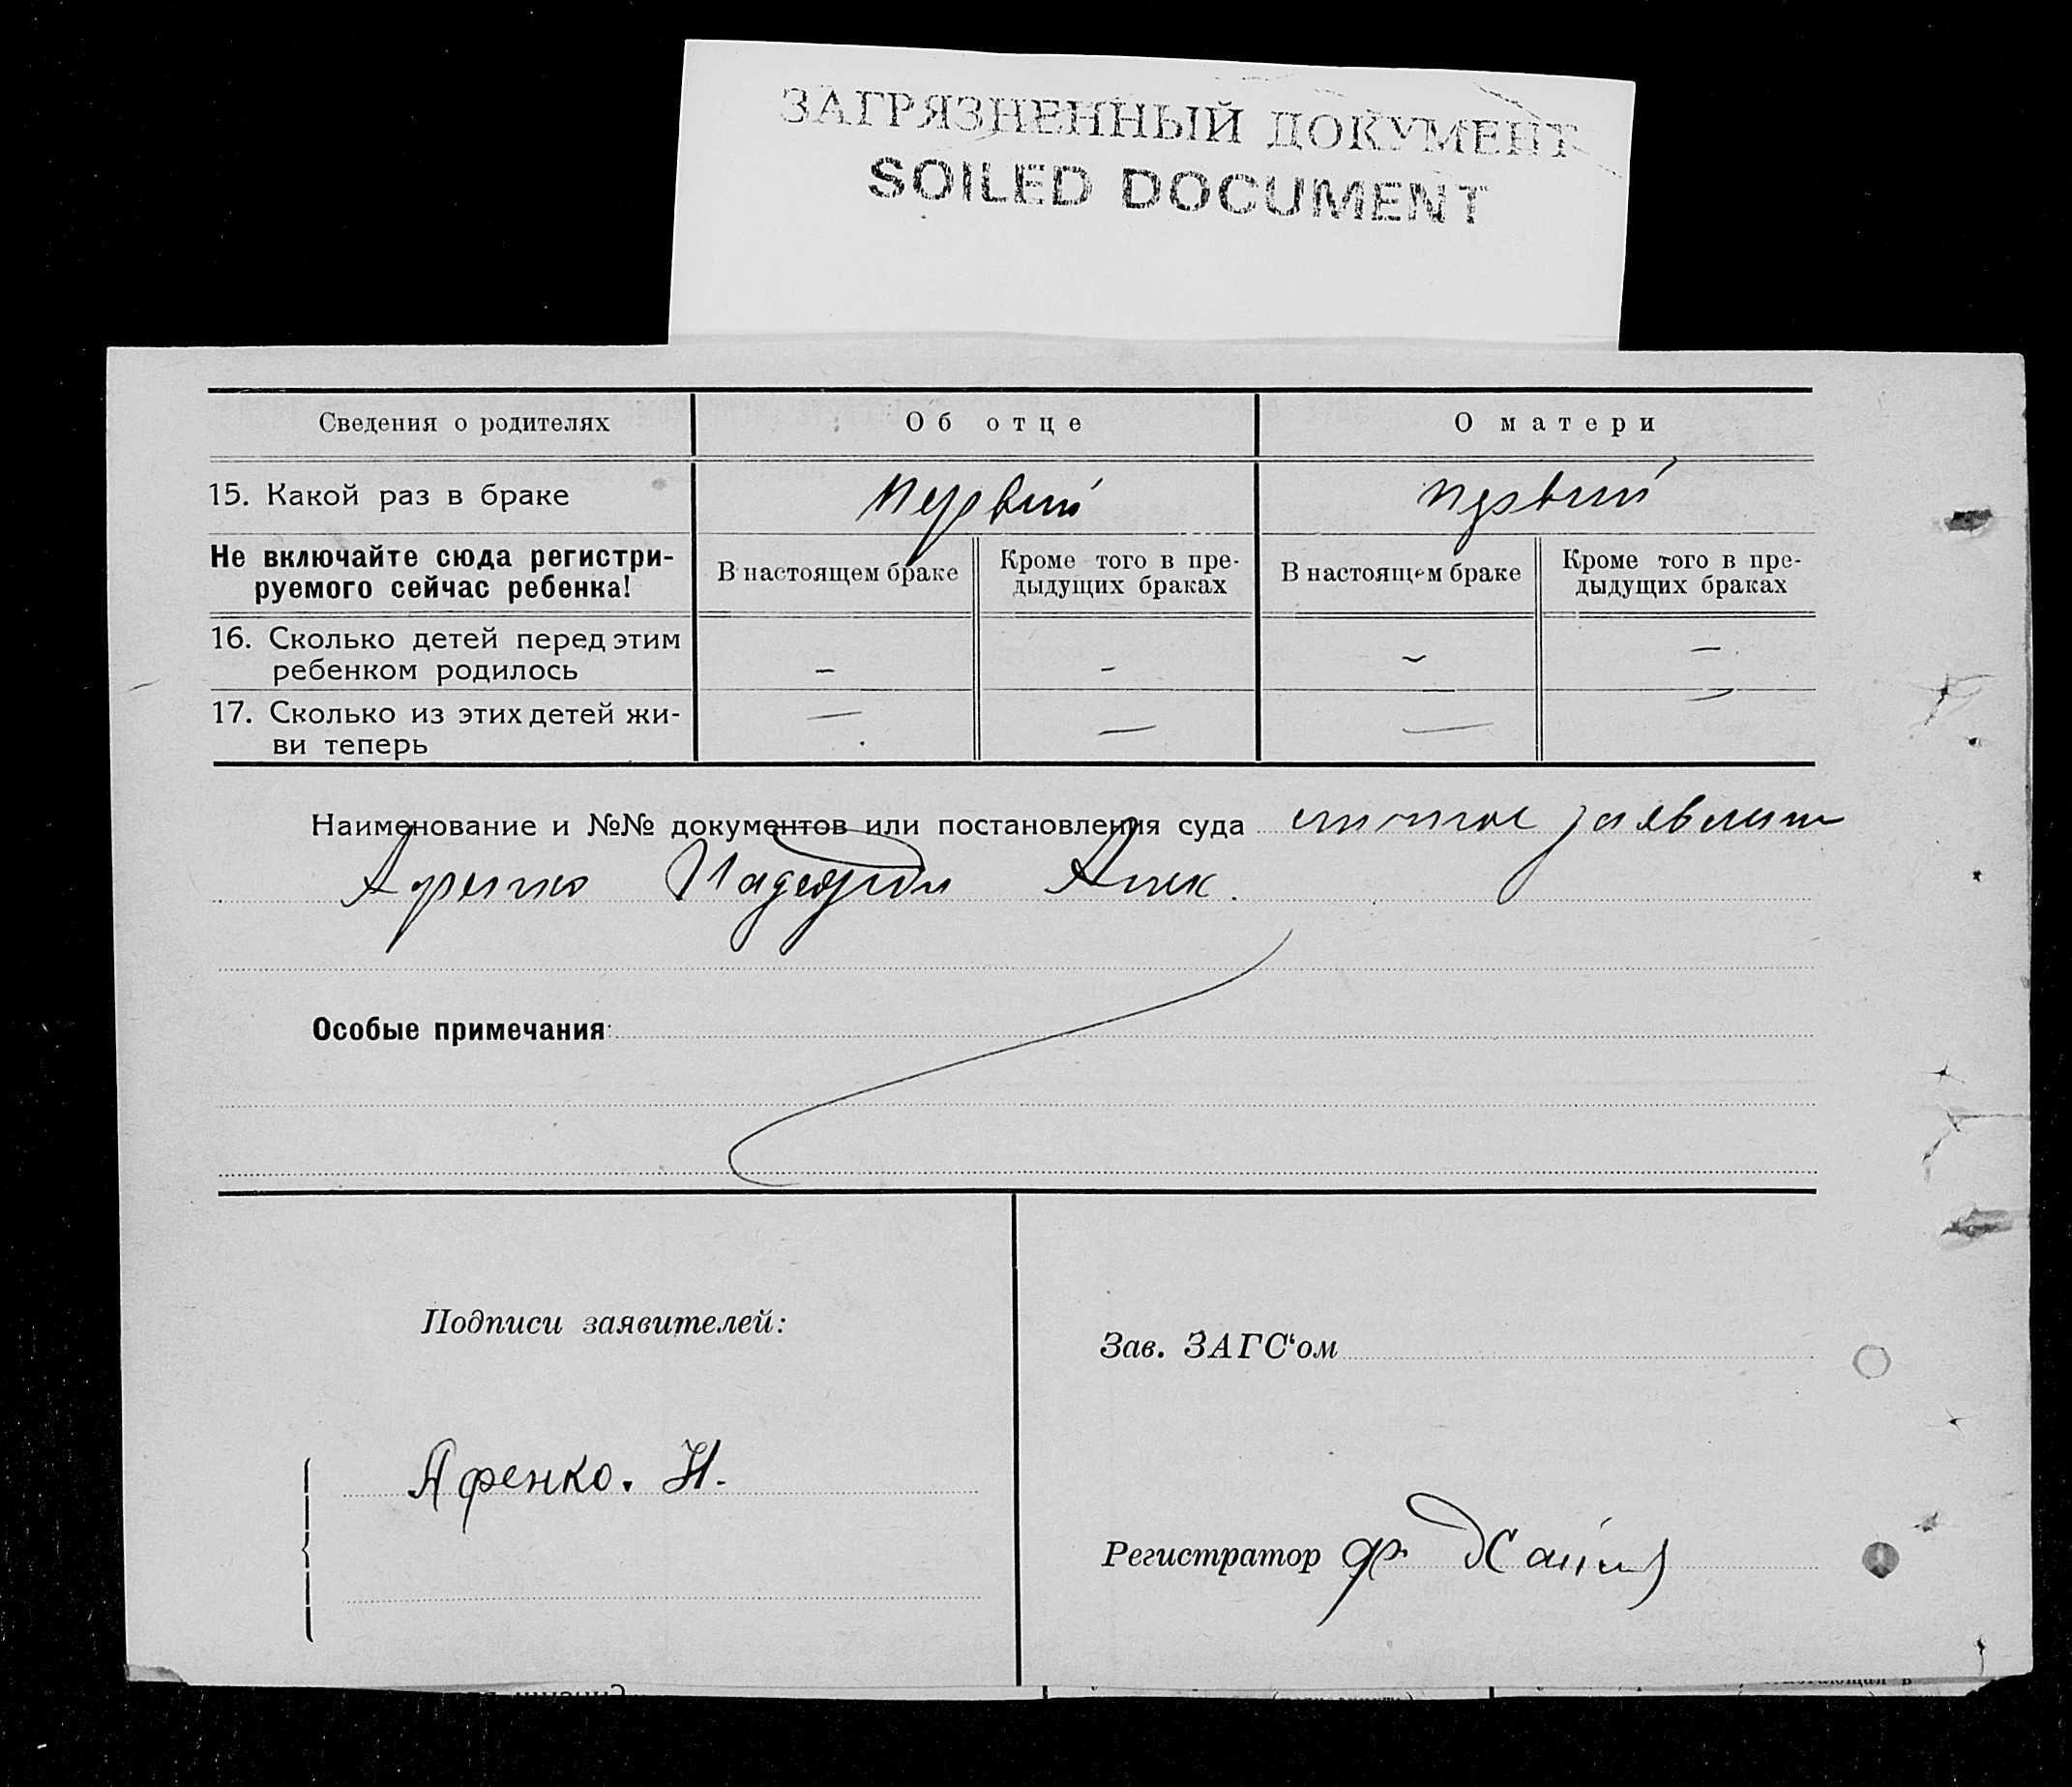 ЗАГРЯЗНЕННЫЙ ДОКУМЕНТ
SOILED DOCUMENT
Сведения о родителях Об отце О матери
15. Какой раз в браке первый первый
Не включайте сюда регистри-
руемого сейчас ребенка!
В настоящем браке
Кроме того в пре-
дыдущих браках
В настоящем браке
Кроме того в пре-
дыдущих браках
16. Сколько детей перед этим
ребенком родилось - - - -
17. Сколько из этих детей жи-
ви теперь — — — —
Наименование и №№ документов или постановления суда личное заявление
Афенко Надежды Алек.
Особые примечания:
Подписи заявителей:
Зав. ЗАГС‘ом
Афенко. Н.
Регистратор